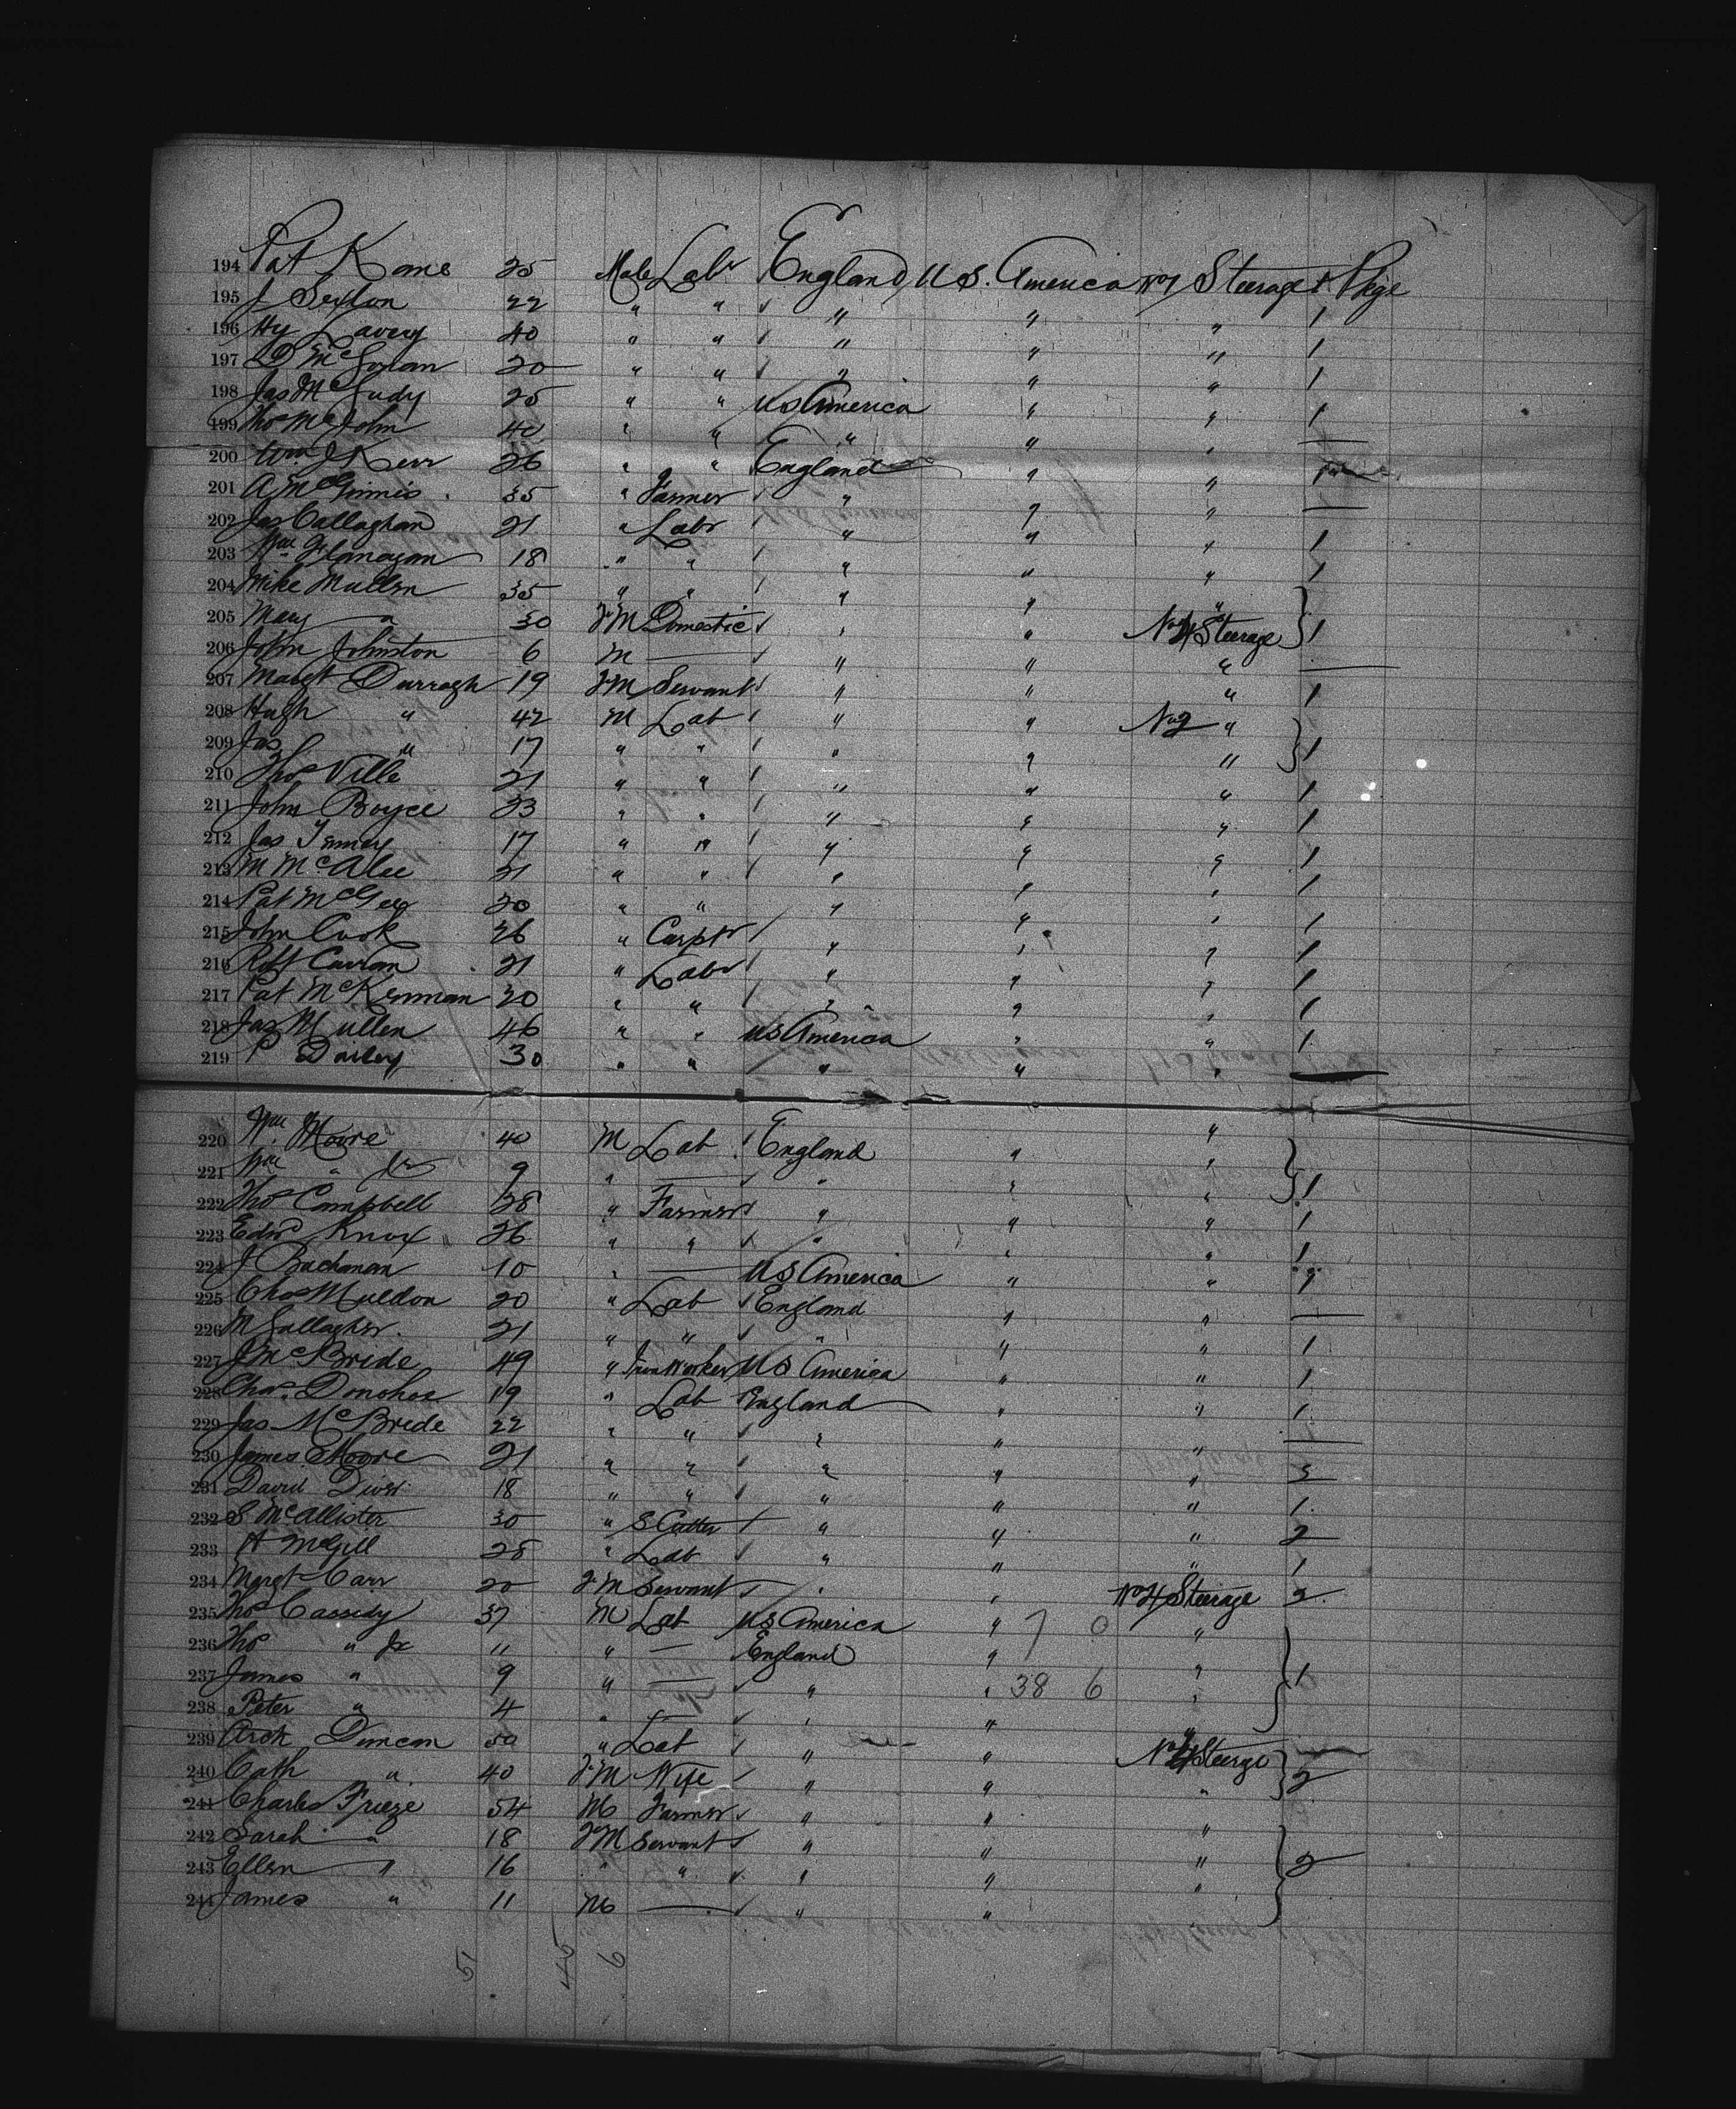 194 Pat Kane 25 Male Labr England U S. America No 1 Steerage 1 Pkge
195 J Sexton 22 " " " " " 1
196 Hy Lavery 40 " " " " " 1
197 20 " " " " " 1
198 Jas 25 " " US America " " 1
199 Thos McJohn 40 " " " " " —
200 Wm J Kerr 26 " " England " " 1
201 A McGinnis 35 " Farmer " " " —
202 Jas Callaghan 21 " Labr " " " 1
203 Wm Flanagan 18 " " " " " 1
204 Mike Mullen 35 " " " " "
205 Mary " 30 FM Domestic " " No 4 Steerage 1
206 John Johnston 6 M — " " " —
207 Margt Darragh 19 FM Servant " " " 1
208 Hugh " 42 M Lab " " No 2 "
209 Jas " 17 " " " " " 1
210 Thos Ville 21 " " " " " 1
211 John Boyce 23 " " " " " 1
212 Jas 17 " " " " " 1
213 M McAlee 21 " " " " " 1
214 Pat McGee 20 " " " " " 1
215 John Cook 26 " Carptr " " " 1
216 Robt Curran 21 " Labr " " " 1
217 Pat McKenman 20 " " " " " 1
218 Jas Mullen 46 " " US America " " 1
219 P Dailey 30 " " " " " —
220 Wm Moore 40 M Lab England " "
221 Wm " Jr 9 " — " " " 1
222 Thos Campbell 28 " Farmer " " " 1
223 Edwd Knox 26 " " " " " 1
224 J Buchanan 10 " — US America " "
225 Chas Muldon 20 " Lab England " " —
226 M Gallagher 21 " " " " " 1
227 J McBride 49 " Iron Worker US America " " 1
228 Chas. Donohoe 19 " Lab England " " 1
229 Jas McBride 22 " " " " " —
230 James Moore 21 " " " " " 3
231 David Diver 18 " " " " " 1
232 S McAllister 30 " S Cutter " " " 2
233 H McGill 28 " Lab " " " 1
234 Margt Carr 20 FM Servant " " No 4 Steerage 2
235 Thos Cassidy 37 M Lab US America " 7 0 "
236 Thos " Jr 11 " — England " "
237 James " 9 " — " " 38 6 " 1
238 Peter " 4 " — " " "
239 Arch Duncan 50 " Lab " " No 4 Steerge
240 Cath " 40 FM Wife " " " 2
241 Charles Frieze 54 M Farmer " " "
242 Sarah " 18 FM Servant " " " 2
243 Ellen " 16 " " " " "
244 James " 11 M — " "
51 45 6